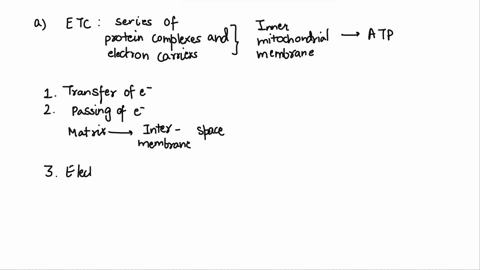 a) ETC: series of
protein complexes and
electron carriers
Inner
mitochondrial
membrane
→ ATP
1. Transfer of e⁻
2. Passing of e⁻
Matrix → Inter-
membrane
space
3. Elec